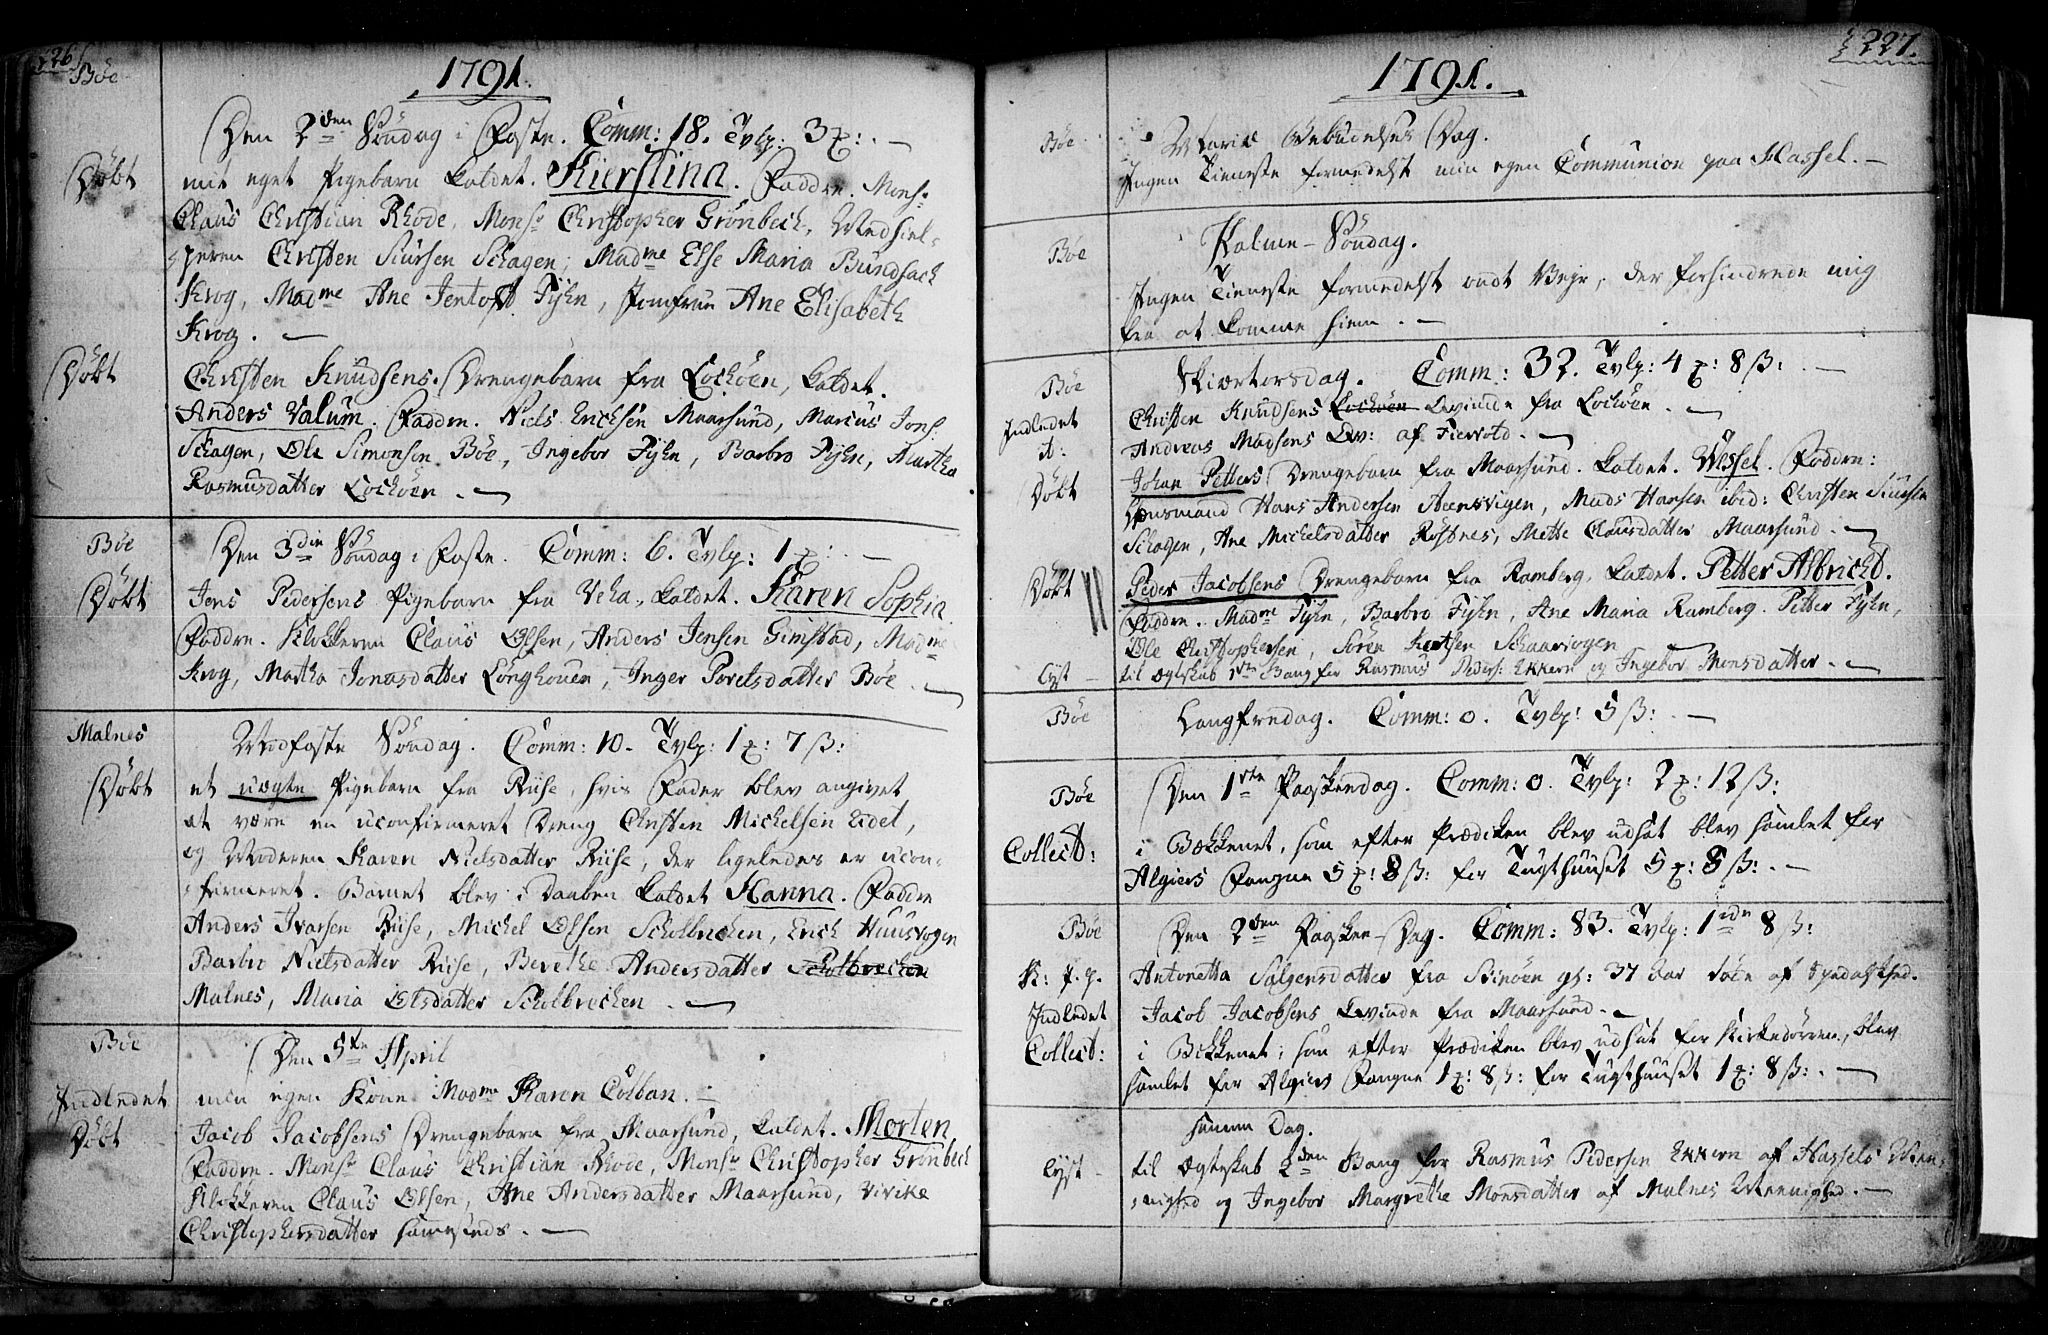 226.
1791.
Bøe
Den 2den Søndag i Faste. Comm: 18. Tvlp: 3 ꝛ:
Døbt
mit eget Pigebarn kaldet. Kierstina. Faddre. Monsr
Claus Christian Rhode, Monsr Christopher Grønbech, Medhiel-
peren Christen Siursen Schagen; Madme Else Maria Bundsach
Krog, Madme Ane Jentoft Fyhn, Jomfrue Ane Elisabeth
Krog.
Døbt
Christen Knudsens Drengebarn fra Lochøen, kaldet.
Anders Valum. Faddre. Niels Ericksen Maarsund, Marcus Jons:
Schagen, Ole Simonsen Bøe, Ingebor Fyhn, Barbro Fyhn, Martha
Rasmusdatter Lochøen.
Bøe
Den 3die Søndag i Faste. Comm: 6. Tvlp: 1 ꝛ:
Døbt
Jens Pedersens Pigebarn fra Veha, kaldet. Karen Sophia
Faddre. Klokkeren Claus Olsen, Anders Jensen Gimstad, Madme
Krog, Martha Jonasdatter Longhouen, Inger Poretsdatter Bøe.
Malnes
Midfaste Søndag. Comm: 10. Tvlp: 1 ꝛ: 7 ß:
Døbt
et uægte Pigebarn fra Riise, hvis Fader blev angivet
at være en uconfirmeret Dreng Christen Michelsen Eidet,
og Moderen Karen Nielsdatter Riise, der ligeledes er ucon-
firmeret. Barnet blev i Daaben kaldet Hanna. Faddre
Anders Ivarsen Riise, Michel Olsen Scholbrechen, Erich Huusvogen
Barbro Nielsdatter Riise, Berethe Andersdatter Scholbrechen
Malnes, Maria Olsdatter Scholbrechen.
Bøe
Den 5te April
Indledet
min egen Kone Madme Karen Colban.
Døbt
Jacob Jacobsens Drengebarn fra Maarsund, kaldet. Morten
Faddre. Monsr Claus Christian Rhode, Monsr Christopher Grønbech
Klokkeren Claus Olsen, Ane Andersdatter Maarsund, Vivike
Christophersdatter sammesteds.
227.
1791.
Bøe
Mariæ Bebudelses Dag.
Ingen Tieneste formedelst min egen Communion paa Hassel.
Bøe
Palme-Søndag.
Ingen Tieneste formedelst ondt Vejr, der forhindrede mig
fra at komme hiem.
Bøe
Skiærtorsdag. Comm: 32. Tvlp: 4 ꝛ: 8 ß:
Indledet
Christen Knudsens Lochøen Qvinde fra Lochøen.
it:
Andreas Madsens Qv: af Fiervold.
Døbt
Johan Petters Drengebarn fra Maarsund. kaldet. Wessel. Faddre:
Lensmand Hans Andersen Steensvigen, Mads Hansen ibid: Christen Siursen
Schagen, Ane Michelsdatter Røstnes, Mette Clausdatter Maarsund.
Døbt
Peder Jacobsens Drengebarn fra Ramberg, kaldet. Petter Albricht.
Faddre. Madme Fyhn, Barbro Fyhn, Ane Maria Ramberg. Petter Fyhn,
Ole Christophersen, Søren Schaarvogen
Lyst
til Ægteskab 1ste Gang for Rasmus Peders: Ekkern og Ingebor Monsdatter.
Bøe
Langfredag. Comm: 0. Tvlp: 5 ß:
Bøe
Den 1ste Paaskedag. Comm: 0. Tvlp: 2 ꝛ: 12 ß:
Collect:
i Bekkenet, som efter Prædiken blev udsat blev samlet for
Algiers Fangne 5 ꝛ: 8 ß: for Tugthuuset 5 ꝛ: 8 ß:
Bøe
Den 2den Paaske-Dag. Comm: 83. Tvlp: 1 8 ß:
K: f. p.
Antonetta Salgensdatter fra Skinøen gl: 37 Aar døde af Spedalskhed.
Indledet
Jacob Jacobsens Qvinde fra Maarsund.
Collect:
i Bekkenet, som efter Prædiken blev udsat for Kirkedørren, blev
samlet for Algiers Fangne 1 ꝛ: 8 ß: for Tugthuuset 1 ꝛ: 8 ß:
samme Dag.
Lyst
til Ægteskab 2den Gang for Rasmus Pedersen Ekkern af Hassels Mee-
nighed og Ingebor Margrethe Monsdatter af Malnes Meenighed.